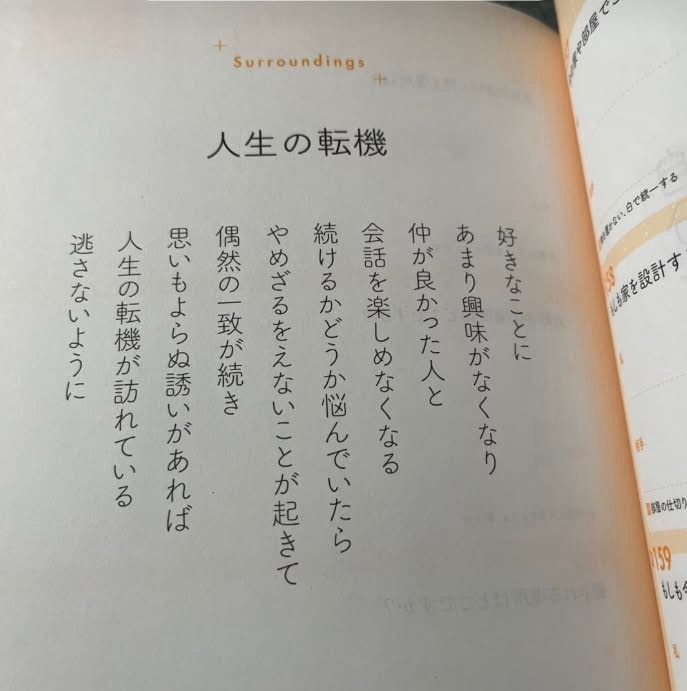 Surroundings
人生の転機
好きなことに
あまり興味がなくなり
仲が良かった人と
会話を楽しめなくなる
続けるかどうか悩んでいたら
やめざるをえないことが起きて
偶然の一致が続き
思いもよらぬ誘いがあれば
人生の転機が訪れている
逃さないように
白で統一する
58
もしも家を設計す
部屋の仕切り
159
もしも今